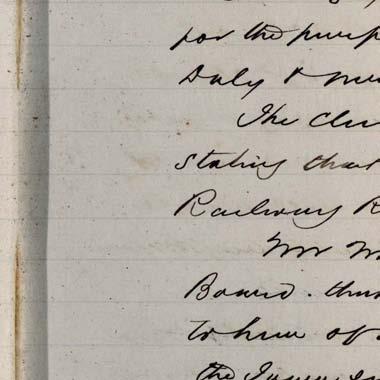 for the purp
Duly &
The Cle
stating that
Railway R
Mr M
Board. tha
to have of
the